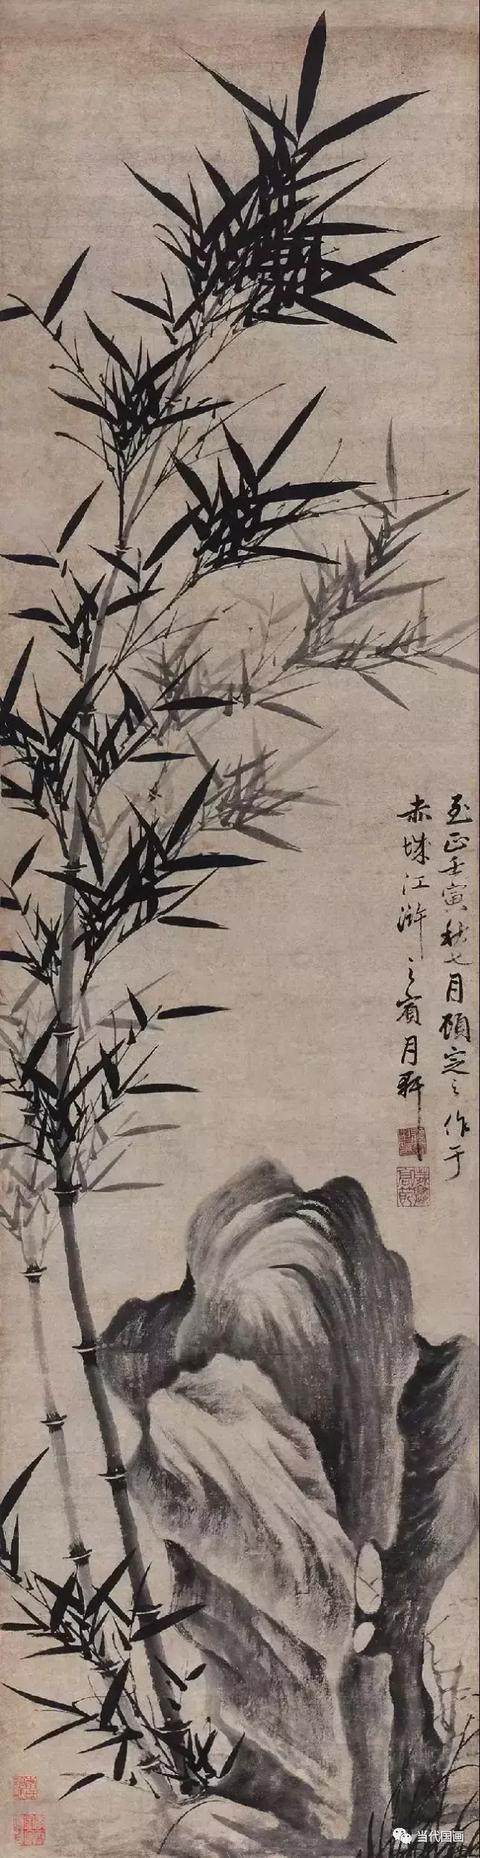 至正壬寅秋七月顾定之作于
赤城江浒之宾月轩
当代国画